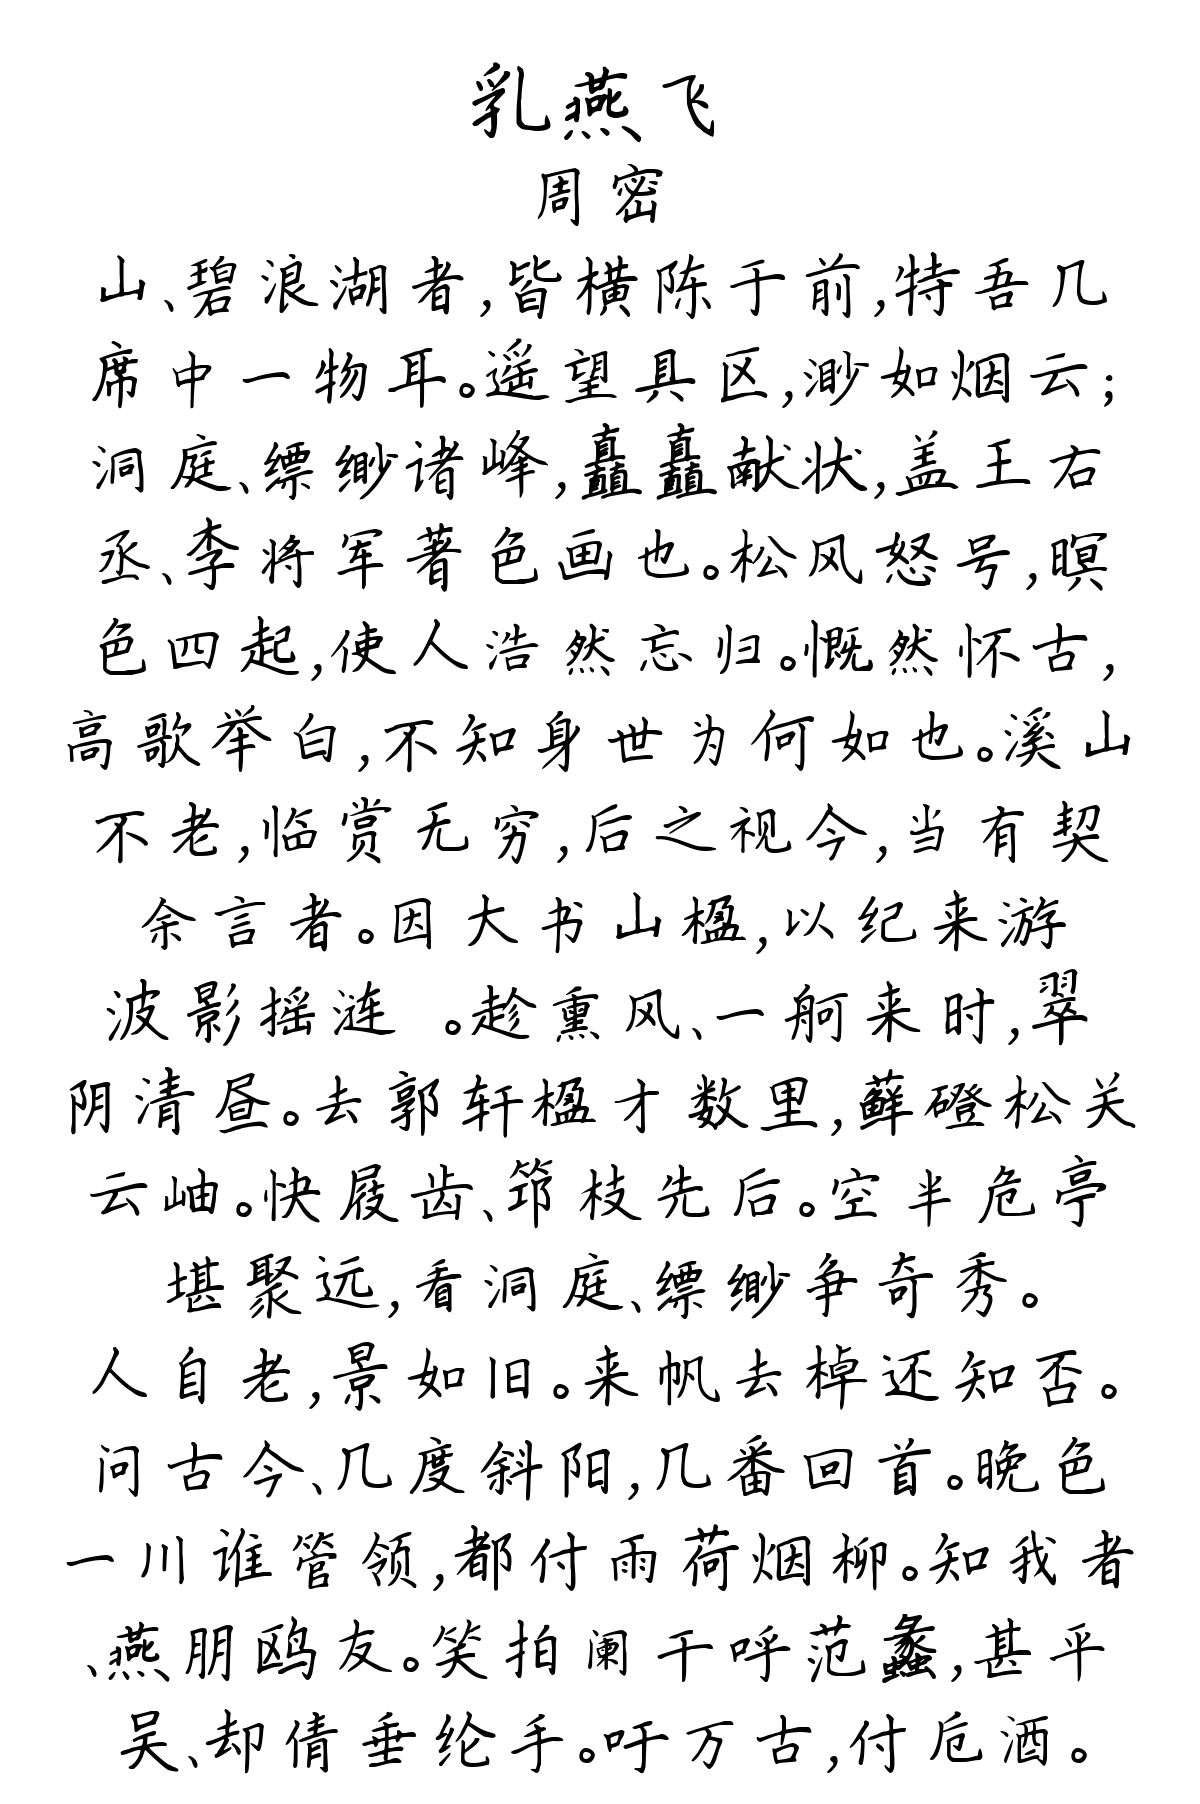 乳燕飞
周密
山、碧浪湖者,皆横陈于前,特吾几
席中一物耳。遥望具区,渺如烟云;
洞庭、缥缈诸峰,矗矗献状,盖王右
丞、李将军著色画也。松风怒号,暝
色四起,使人浩然忘归。慨然怀古,
高歌举白,不知身世为何如也。溪山
不老,临赏无穷,后之视今,当有契
余言者。因大书山楹,以纪来游
波影摇涟 。趁熏风、一舸来时,翠
阴清昼。去郭轩楹才数里,藓磴松关
云岫。快屐齿、筇枝先后。空半危亭
堪聚远,看洞庭、缥缈争奇秀。
人自老,景如旧。来帆去棹还知否。
问古今、几度斜阳,几番回首。晚色
一川谁管领,都付雨荷烟柳。知我者
、燕朋鸥友。笑拍阑干呼范蠡,甚平
吴、却倩垂纶手。吁万古,付卮酒。